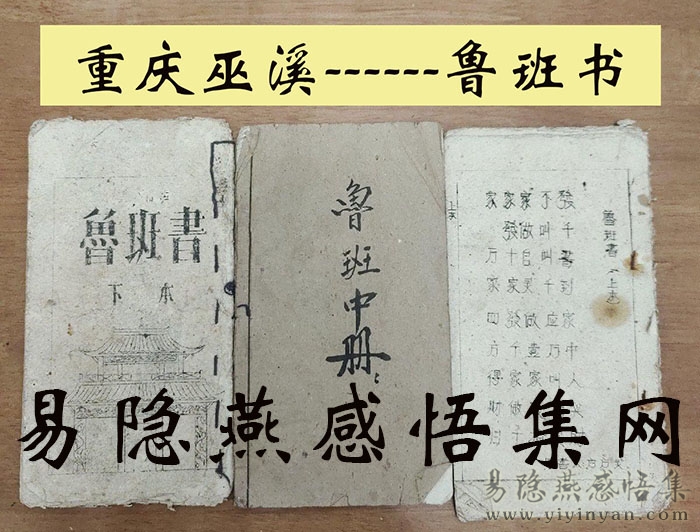 重庆巫溪------鲁班书
魯班書
下本
魯班中册
魯班書（上本
發千書到家中人
不叫叫千应万叫
家做自美做壹家
家發十家發千家做千
家万家四方得財
易隐燕感悟集网
易隐燕感悟集
www.yiyinyan.com